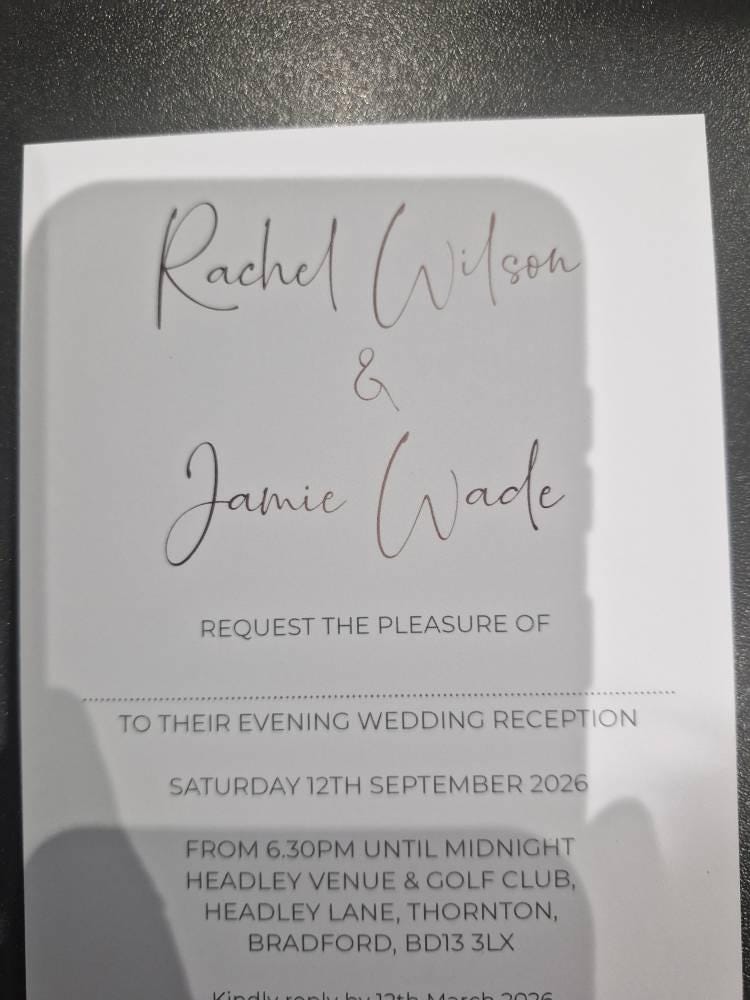 Rachel Wilson
&
Jamie Wade
REQUEST THE PLEASURE OF
TO THEIR EVENING WEDDING RECEPTION
SATURDAY 12TH SEPTEMBER 2026
FROM 6.30PM UNTIL MIDNIGHT
HEADLEY VENUE & GOLF CLUB,
HEADLEY LANE, THORNTON,
BRADFORD, BD13 3LX
Kindly reply by 12th March 2026